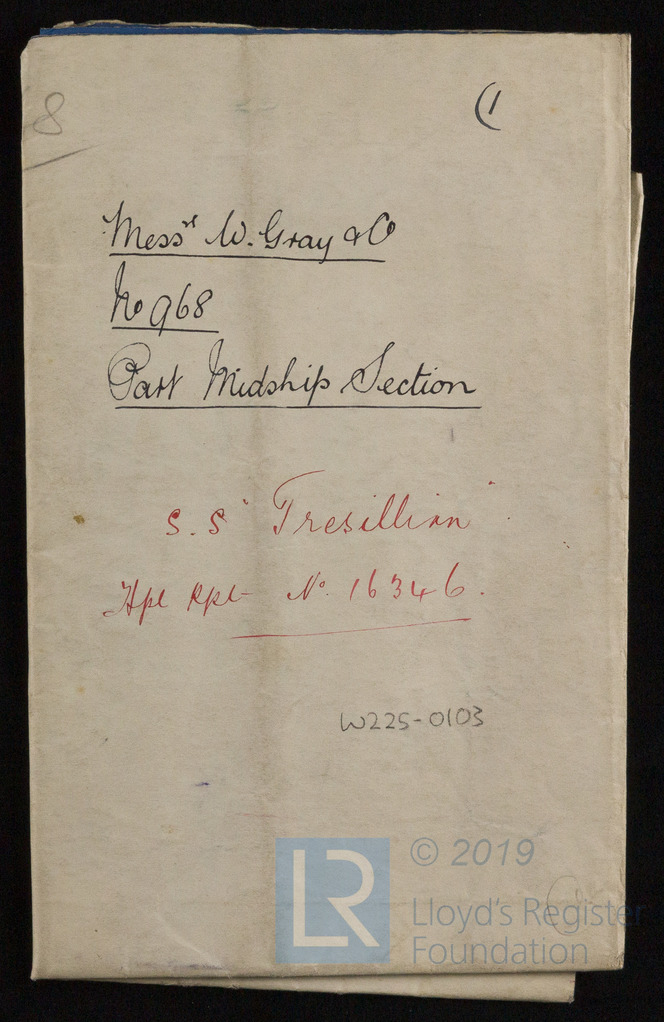 8
(1
Mess^rs W. Gray & Co
No 968
Part Midship Section
S.S "Tresillian"
Hpl Rpt No. 16346.
W225-0103
LR
© 2019
Lloyd's Register
Foundation